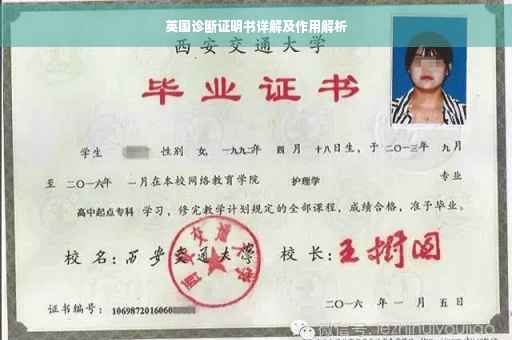 英国诊断证明书详解及作用解析
西安交通大学
毕业证书
学生 性别 女, 一九九二年 四月 十八日生, 于二〇一三年 九月
至 二〇一六年 一月在本校网络教育学院 护理学 专业
高中起点专科 学习, 修完教学计划规定的全部课程, 成绩合格, 准予毕业。
校 名: 西安交通大学 校 长: 王树国
西安交通大学
证书编号: 1069872016060
二〇一六 年 一 月 五 日
微信号: lezhihuiyoujiao